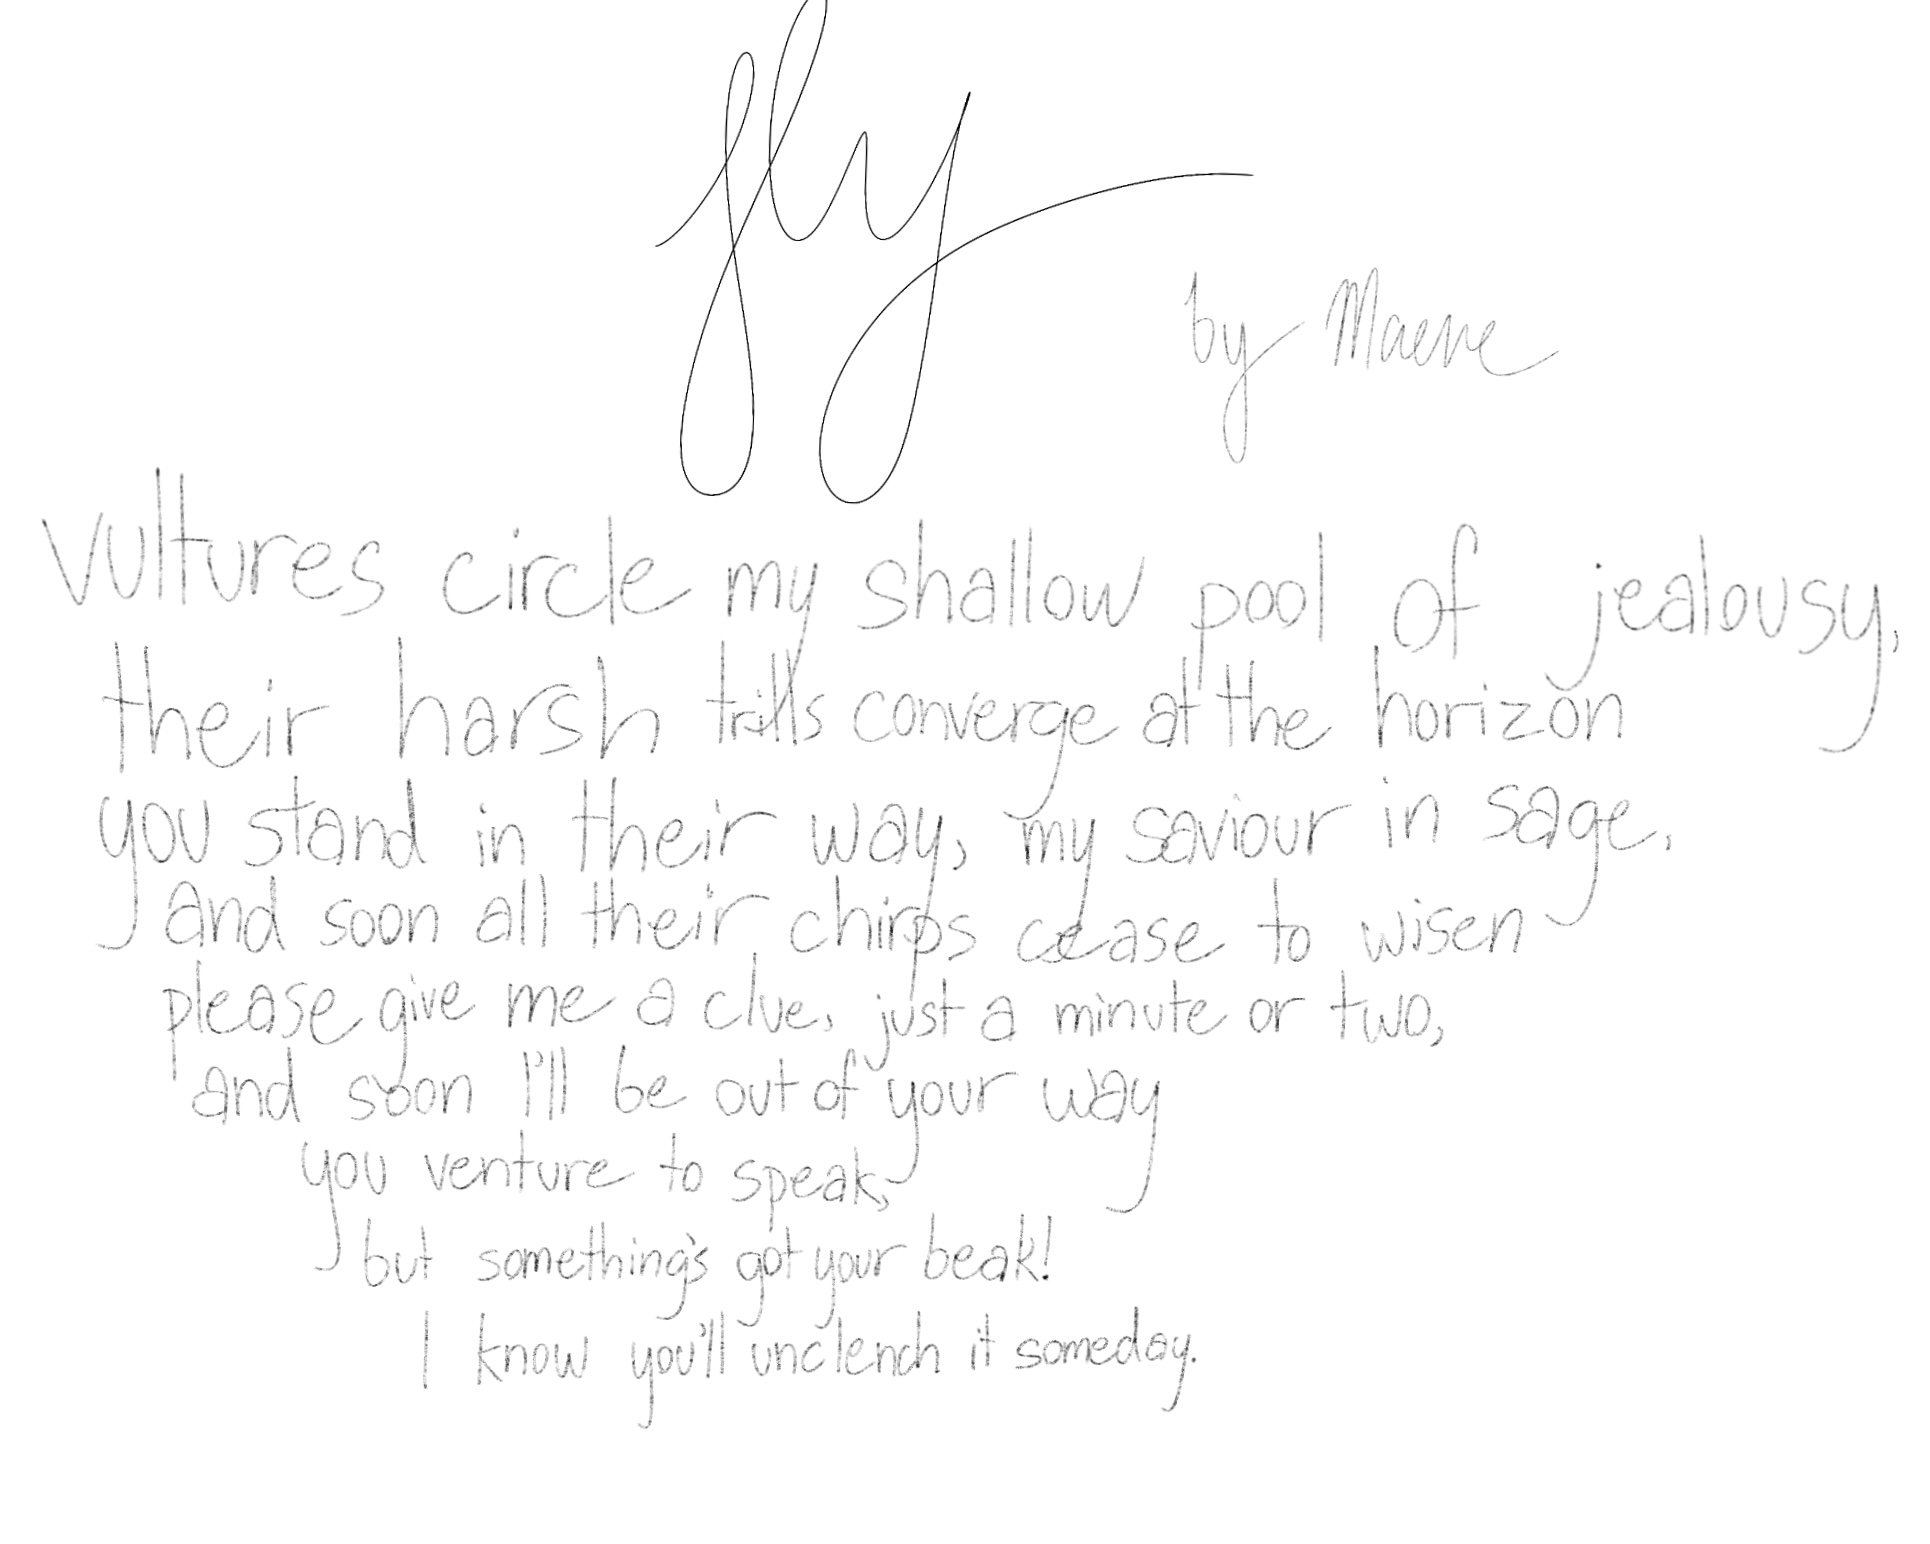 fly
by Maeve
vultures circle my shallow pool of jealousy,
their harsh trills converge at the horizon
you stand in their way, my saviour in sage,
and soon all their chirps cease to wisen
please give me a clue, just a minute or two,
and soon I'll be out of your way
you venture to speak,
but something's got your beak!
I know you'll unclench it someday.